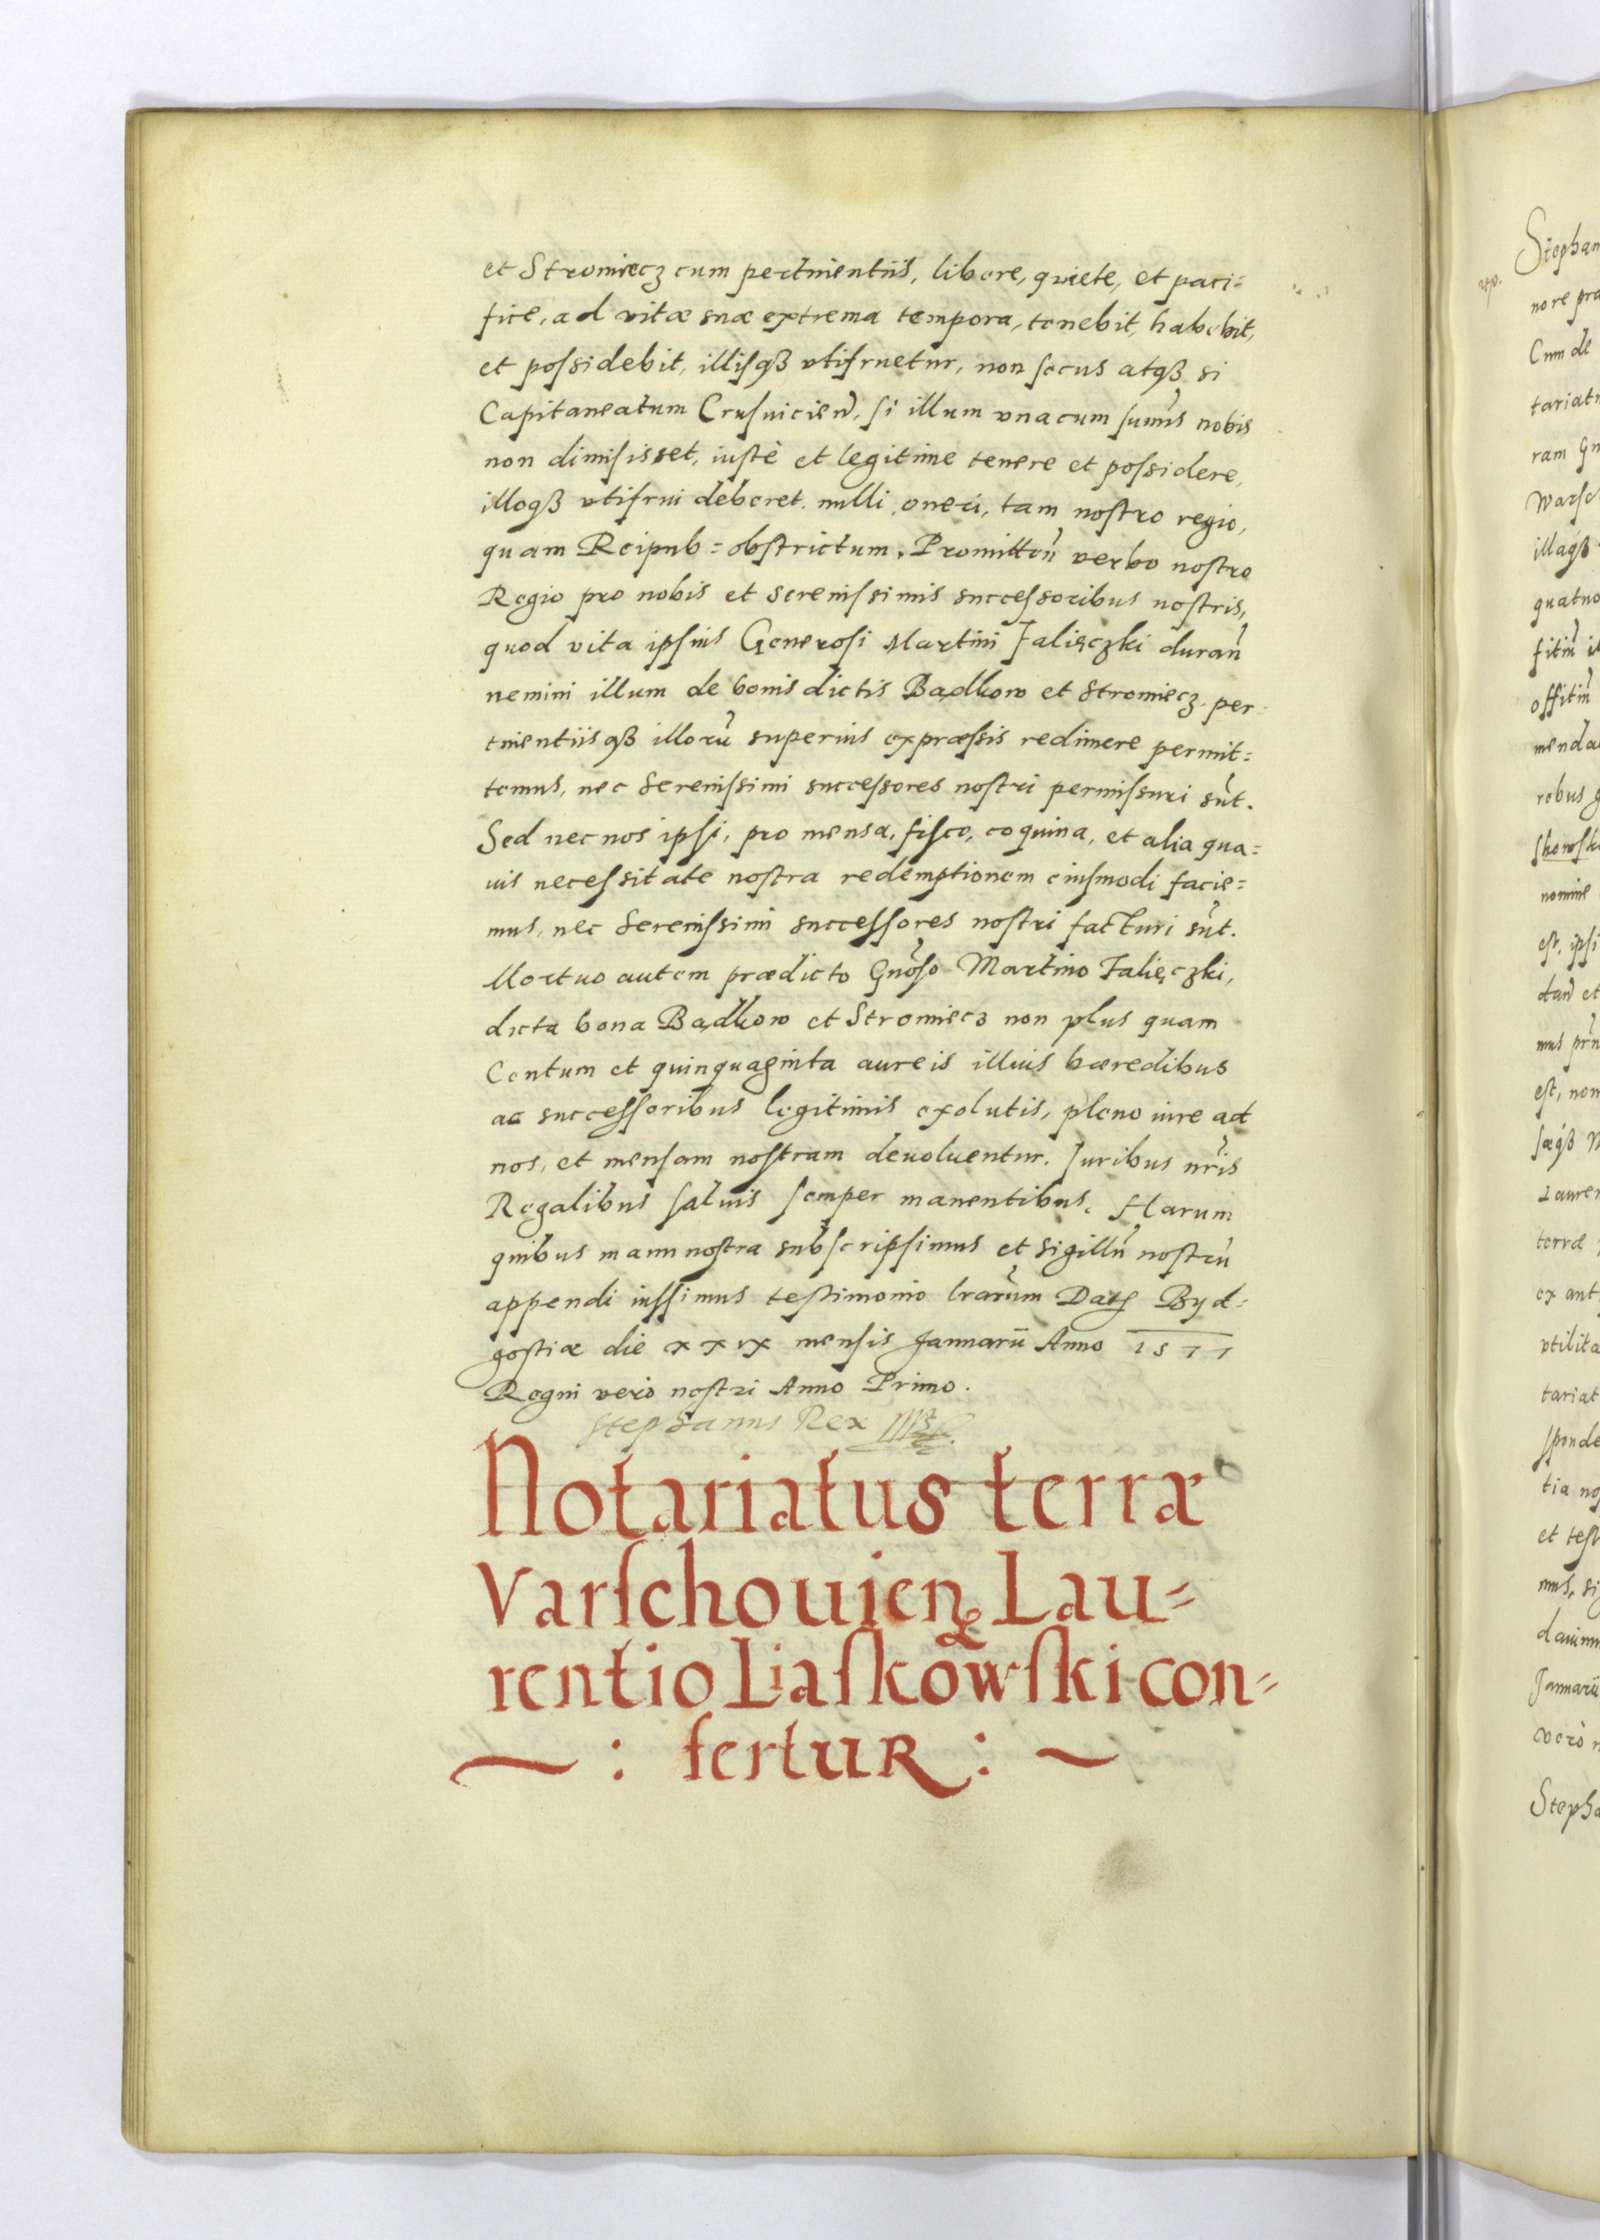 et Stromiecz cum pertinentiis, libere, quiete, et paci=
fice, ad vitæ suæ extrema tempora, tenebit, habebit,
et possidebit, illisqȝ vtifruetur, non secus atqȝ si
Capitaneatum Crusuicien̄, si illum vnacum sum̄is nobis
non dimisisset, iustè et legitime tenere et possidere,
illoqȝ vtifrui deberet. nulli oneri, tam nostro regio,
quam Reipub= obstrictum. Promitten̄ verbo nostro
Regio pro nobis et Serenissimis successoribus nostris,
quod vita ipsius Generosi Martini Ialięczki duran̄
nemini illum de bonis dictis Bądkow et Stromiecz per
tinentiisqȝ illorū superius expræssis redimere permit=
temus, nec Serenissimi successores nostri permissuri sūt.
Sed nec nos ipsi, pro mensa, fisco, coquina, et alia qua=
uis necessitate nostra redemptionem eiusmodi facie=
mus, nec Serenissimi successores nostri facturi sūt.
Mortuo autem prædicto Gnōso Martino Ialięczki,
dicta bona Bądkow et Stromiecz non plus quam
Centum et quinquaginta aureis illius hæredibus
ac successoribus legitimis exolutis, pleno iure ad
nos, et mensam nostram deuoluentur. Iuribus nr̄is
Regalibus saluis semper manentibus. Harum
quibus manu nostra subscripsimus et sigillū nostrū
appendi iussimus testimonio lrarūm Datę Byd=
gostiæ die xxix mensis Januarii Anno 1577
Regni vero nostri Anno Primo.
Stephanus Rex
Notariatus terræ
Varschouien̄ Lau=
rentio Liaskowski con=
: fertur :
Stephan
nore præ
Cum de
tariat
ram Gn
Warsc
illaqȝ
quatuo
offitiū
menda
rebus
skowsk
nomine
est, ipsi
dan̄ et
est, non
Lauren
terræ
ex ant
vtilita
tariat
sponde
tia no
et test
mus, si
Januarii
verò n
Stepha